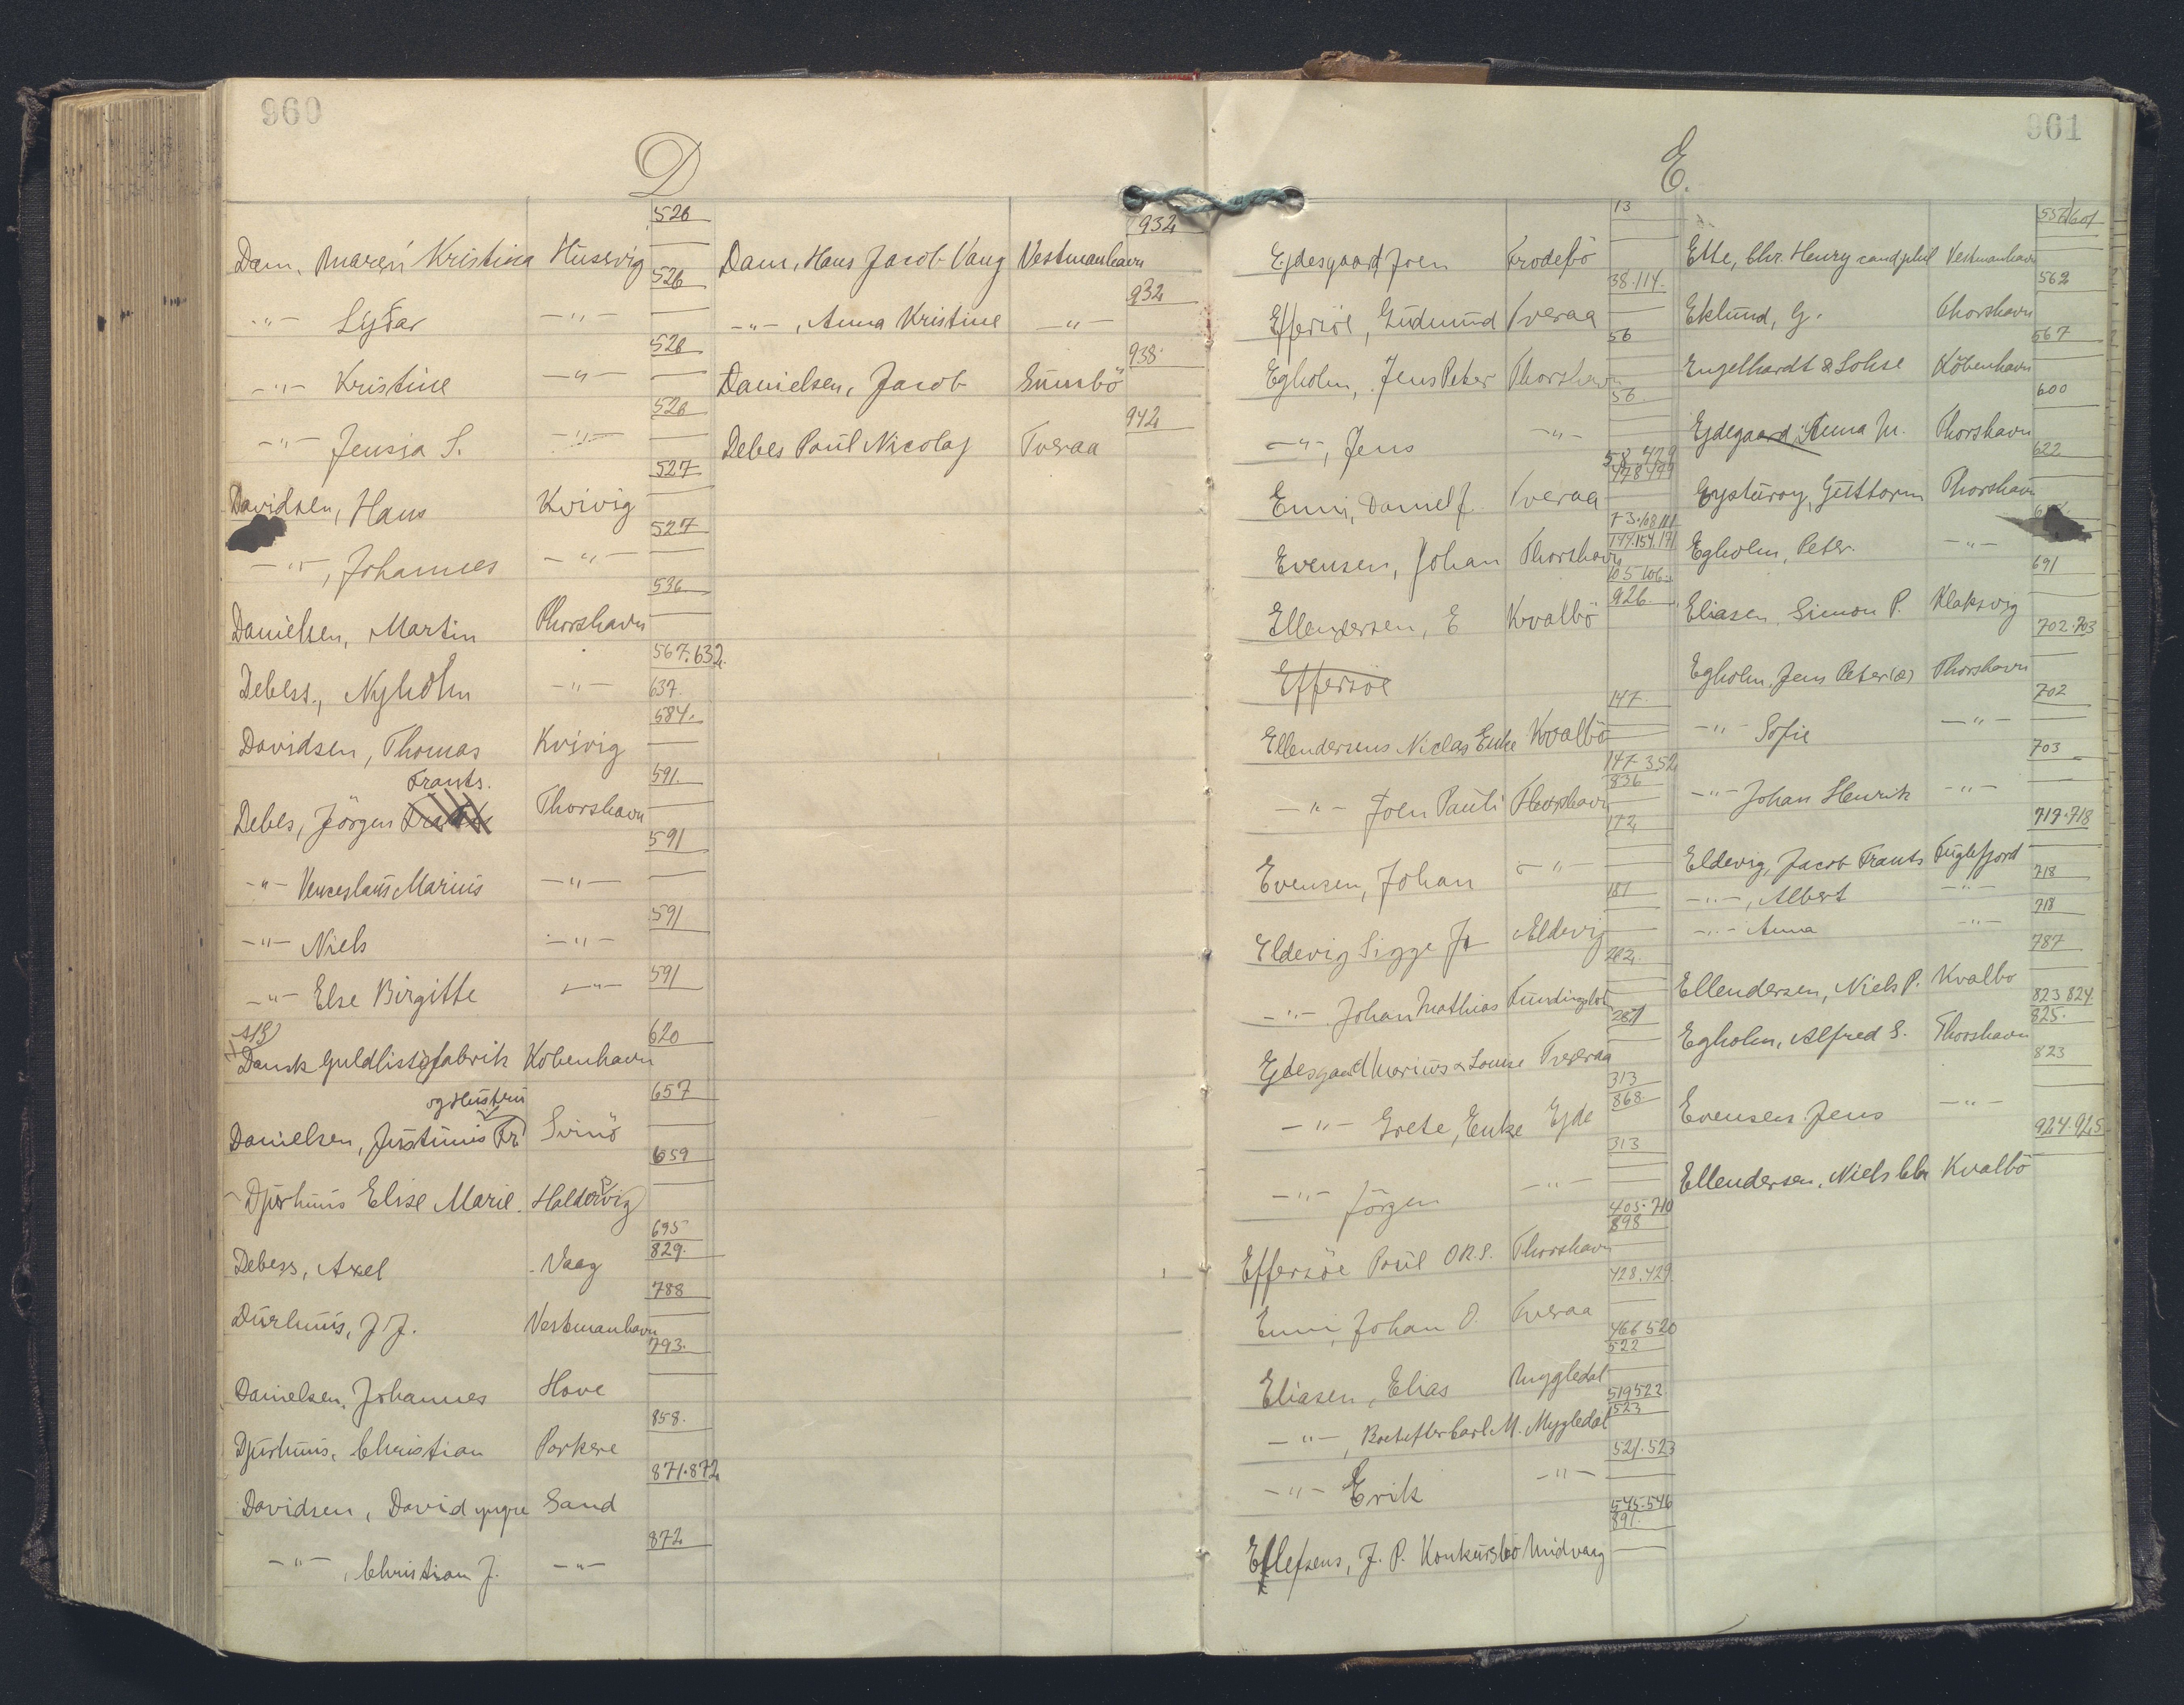 960
D
526
Dam, Maren Kristina Husevig
526
-"- Lydar -"-
526
-"- Kristine -"-
526
-"- Jensia S. -"-
527
Davidsen, Hans Kvivig
527
-"-, Johannes -"-
536
Danielsen, Martin Thorshavn
567.632.
637.
Debess, Nyholm -"-
584.
Davidsen, Thomas Kvivig
591.
Frants.
Debes, Jörgen Thorshavn
591
-"- Venceslaus Marius -"-
591
-"- Niels -"-
591
-"- Else Birgitte -"-
620
A/S
Dansk Guldlistefabrik Köbenhavn
657
og Hustru
Danielsen, Justinus Fr. Svinö
659
Djurhuus Elise Marie. Haldervig
695
829.
Debess, Axel Vaag
788
Durhuus, J. J. Vestmanhavn
793.
Danielsen, Johannes Hove
858.
Djurhuus, Christian Porkere
871.872
Davidsen, David yngre Sand
872
-"-, Christian J. -"-
932
Dam, Hans Jacob Vang Vestmanhavn
932
-"-, Anna Kristine -"-
938.
Danielsen, Jacob Sumbö
942
Debes Poul Nicolaj Tveraa
961
E.
13
Ejdesgaard Joen Frodebö
38.114.
Effersöe, Gudmund Tveraa
56
Egholm, Jens Peter Thorshavn
56.
-"-, Jens -"-
58 429
478 479
Enni, Daniel J. Tveraa
73.108.111
144.154.171
Evensen, Johan Thorshavn
105 106.
926.
Ellendersen, E Kvalbö
Effersöe
147.
Ellendersens Niclas Enke Kvalbö
147 352
836
-"- Joen Pauli Thorshavn
172
Evensen, Johan -"-
181
Eldevig Sigge Jr Eldevig
262.
-"- Johan Mathias Fundingsbotn
281
Ejdesgaard Marius & Louise Tveraa
313
868.
-"- Grete, Enke Ejde
313
-"- Jörgen -"-
405.710
898
Effersöe Poul O.R.S. Thorshavn
428.429.
Enni, Johan O. Tveraa
466 520
522
Eliasen, Elias Mygledal
519 522.
523
-"-, Boet efter Carl M. Mygledal
521.523
-"- Erik -"-
545.546
891.
Ellefsens, J. P. Konkursbo Midvaag
556/601
Elle, Chr. Henry cand phil Vestmanhavn
562
Eklund, G. Thorshavn
567
Engelhardt & Lohse Köbenhavn
600
Ejdegaard, Anna M. Thorshavn
622
Eysturoy, Guttorm Thorshavn
Egholm, Peter. -"-
691
Eliasen, Simon P. Klaksvig
702.703
Egholm, Jens Peter (æ) Thorshavn
702
-"- Sofie -"-
703
-"- Johan Henrik -"-
717.718
Eldevig, Jacob Frants Fuglefjord
718
-"-, Albert -"-
718
-"- Anna -"-
787
Ellendersen, Niels P. Kvalbö
823 824.
825.
Egholm, Alfred S. Thorshavn
823
Evensen Jens -"-
924.925.
Ellendersen, Niels Chr Kvalbö